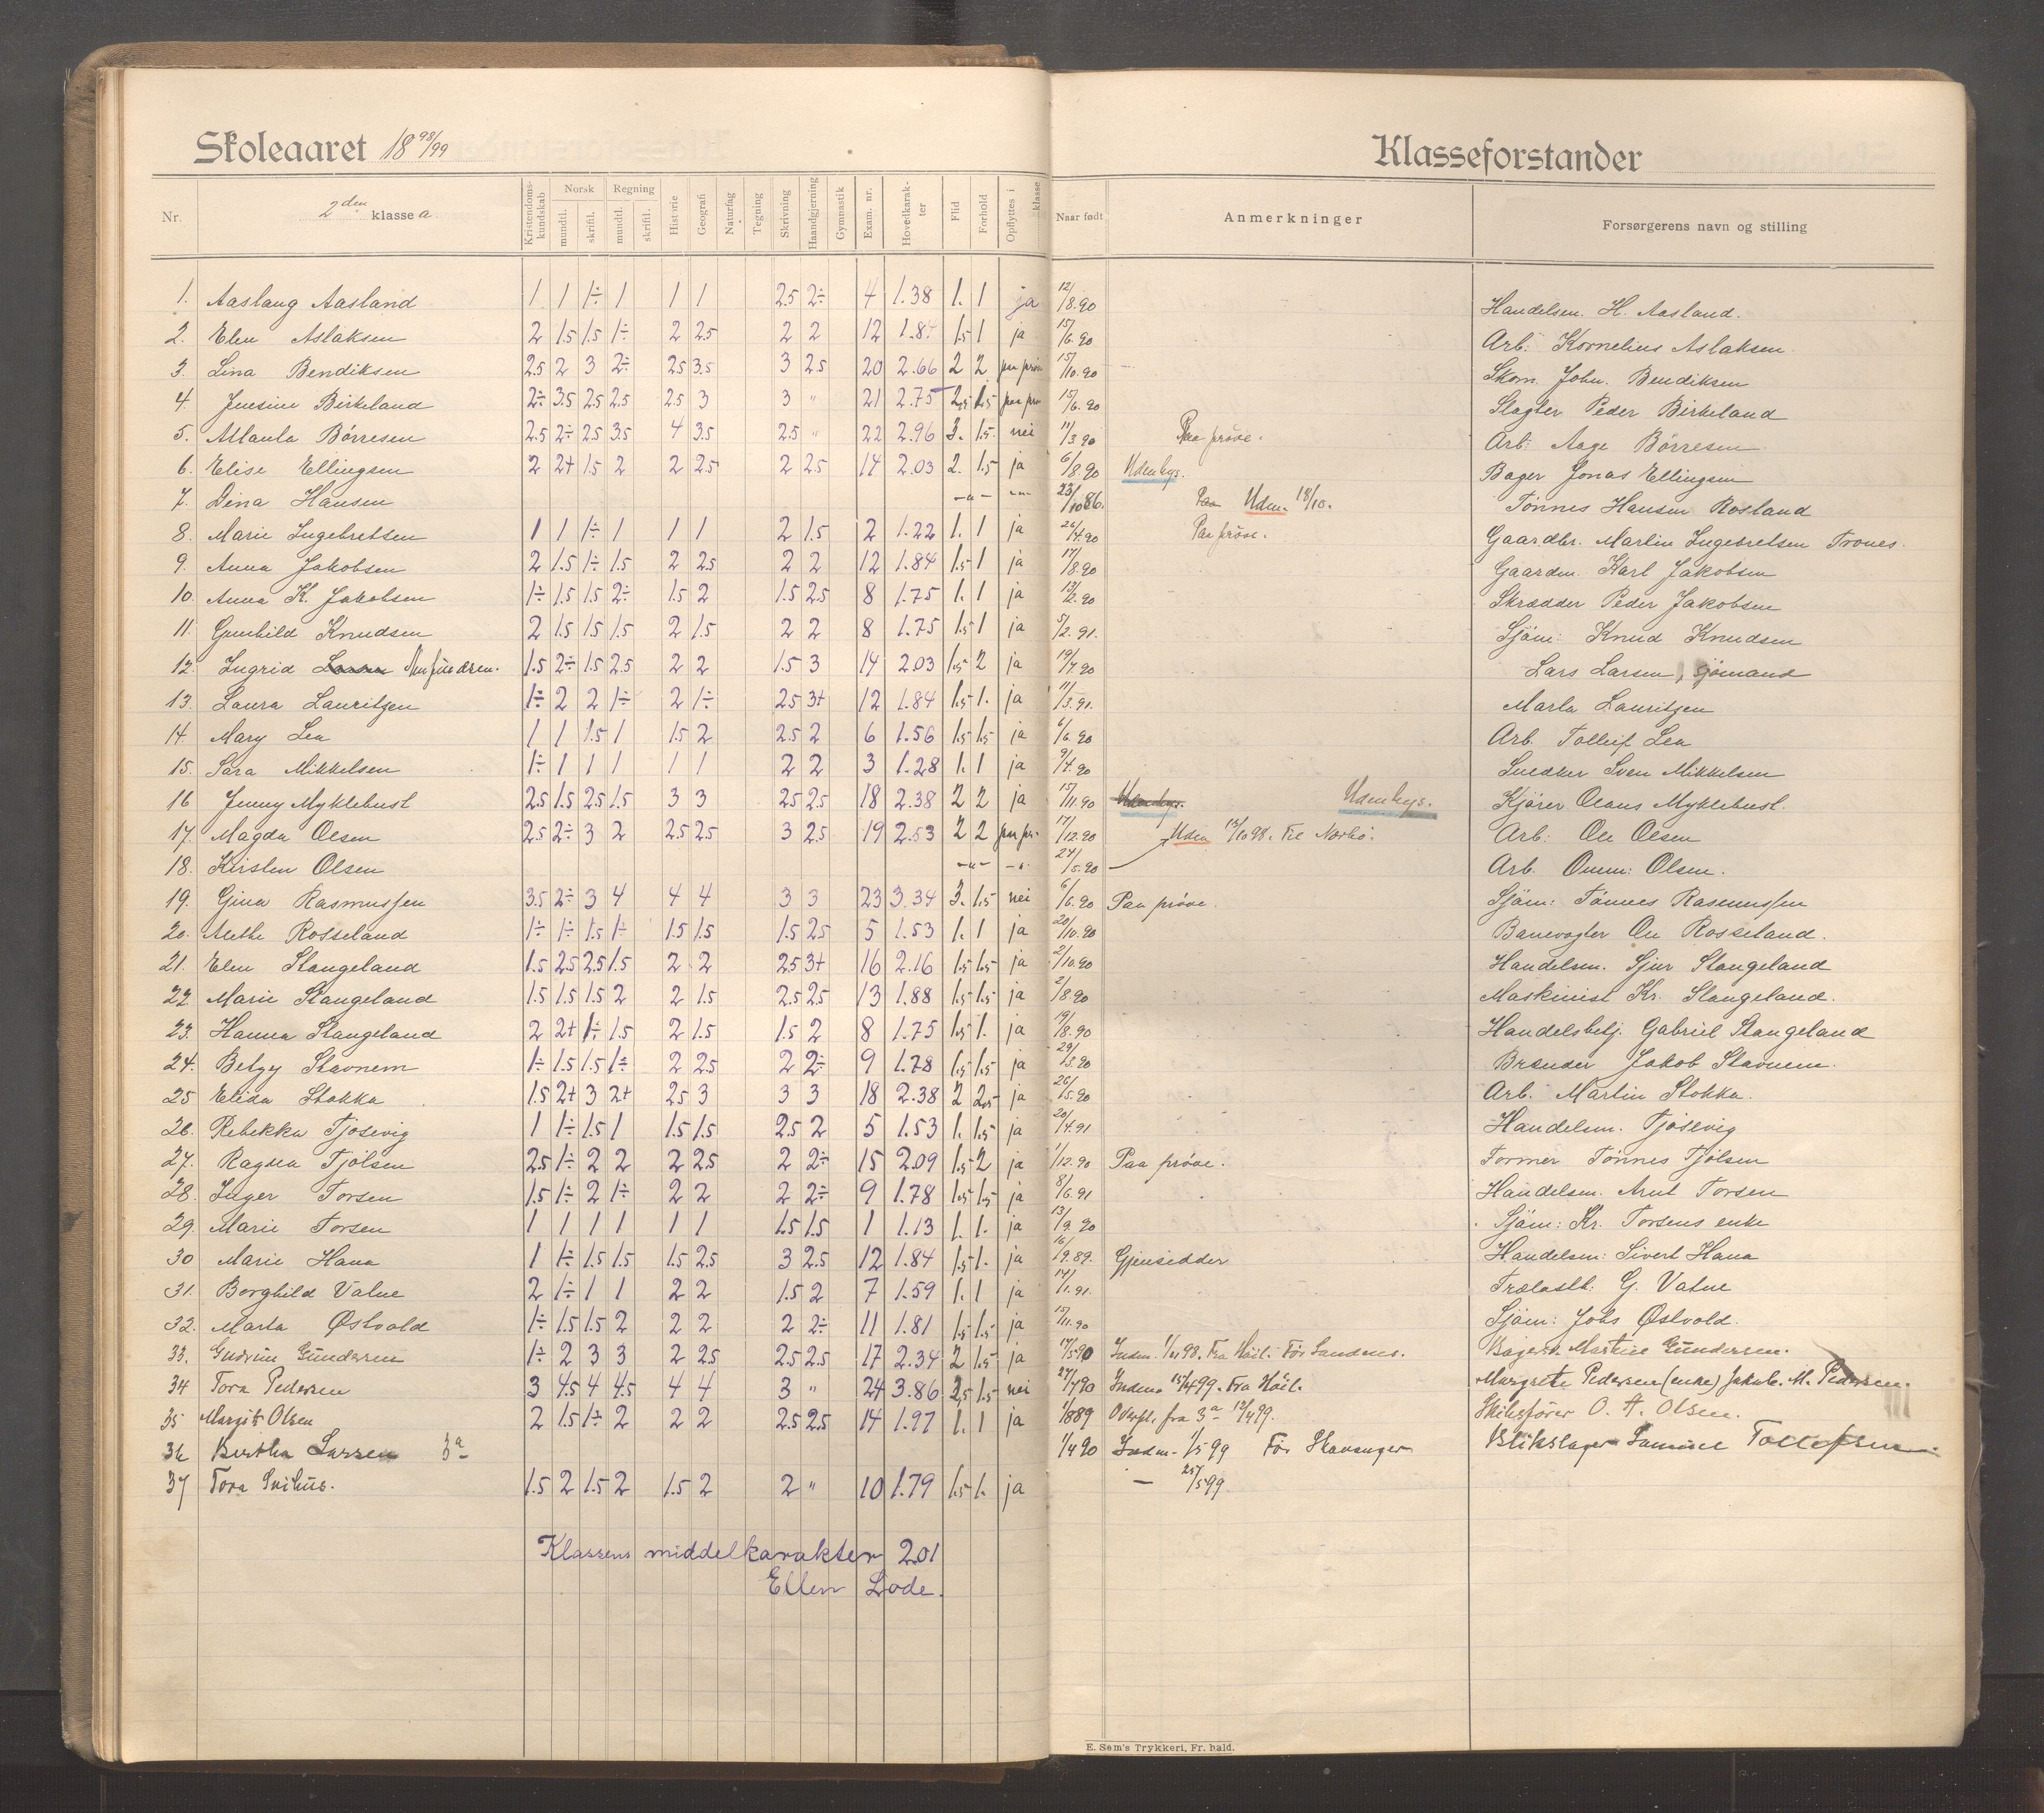 Skoleaaret 18 98/99
Klasseforstander
Nr.
2den klasse a.
Kristendoms-kundskab
Norsk mundtl. skriftl.
Regning mundtl. skriftl.
Historie
Geografi
Naturfag
Tegning
Skrivning
Haandgjerning
Gymnastik
Exam. nr.
Hovedkarak-ter
Flid
Forhold
Opflyttes i klasse
Naar født
Anmerkninger
Forsørgerens navn og stilling
1. Aaslaug Aasland 1 1 1÷ 1 1 1 2.5 2÷ 4 1.38 1. 1 ja 12/8.90 Handelsm. H. Aasland.
2. Elen Aslaksen 2 1.5 1.5 1÷ 2 2.5 2 2 12 1.84 1.5 1 ja 15/6.90 Arb. Kornelius Aslaksen.
3. Lina Bendiksen 2.5 2 3 2÷ 2.5 3.5 3 2.5 20 2.66 2 2 paa prøve 15/10.90 Skom. John. Bendiksen
4. Jensine Birkeland 2÷ 3.5 2.5 2.5 2.5 3 3 " 21 2.75 2.5 1.5 paa prø 15/6.90 Slagter Peder Birkeland
5. Maula Børresen 2.5 2÷ 2.5 3.5 4 3.5 2.5 " 22 2.96 3. 1.5 nei 11/3.90 Paa prøve. Arb: Aage Børresen
6. Elise Ellingsen 2 2+ 1.5 2 2 2.5 2 2.5 14 2.03 2. 1.5 ja 6/8.90 Udenbys. Bager Jonas Ellingsen
7. Dina Hansen -"- -"- 23/10 86. Paa Udm. 18/10. Tønnes Hansen Rosland
8. Marie Ingebretsen 1 1 1÷ 1 1 1 2 1.5 2 1.22 1. 1 ja 26/4.90 Paa prøve. Gaardbr. Martin Ingebretsen Trones.
9. Anna Jakobsen 2 1.5 1÷ 1.5 2 2.5 2 2 12 1.84 1.5 1 ja 17/8.90 Gaardm. Karl Jakobsen
10. Anna K. Jakobsen 1÷ 1.5 1.5 2÷ 1.5 2 1.5 2.5 8 1.75 1. 1 ja 13/2.90 Skrædder Peder Jakobsen
11. Gunhild Knudsen 2 1.5 1.5 1.5 2 1.5 2 2 8 1.75 1.5 1 ja 5/2.91. Sjøm: Knud Knudsen
12. Ingrid Larsen 1.5 2÷ 1.5 2.5 2 2 1.5 3 14 2.03 1.5 2 ja 19/7.90 Lars Larsen, sjømand
13. Laura Lauritzen 1÷ 2 2 1÷ 2 1÷ 2.5 3+ 12 1.84 1.5 1. ja 11/3.91. Marta Lauritzen
14. Mary Lea 1 1 1.5 1 1.5 2 2.5 2 6 1.56 1.5 1.5 ja 6/6.90 Arb. Tolleif Lea
15. Sara Mikkelsen 1÷ 1 1 1 1 1 2 2 3 1.28 1. 1 ja 9/4.90 Snedker Sven Mikkelsen
16 Jenny Myklebust 2.5 1.5 2.5 1.5 3 3 2.5 2.5 18 2.38 2 2 ja 15/11.90 Udenbys. Udenbys. Kjører Olaus Myklebust.
17. Magda Olsen 2.5 2÷ 3 2 2.5 2.5 3 2.5 19 2.53 2 2 paa pr. 17/12.90 Udm 15/10 98. Til Nærbø. Arb: Ole Olsen
18. Kirsten Olsen -"- -"- 24/5.90 Arb. Omm: Olsen.
19. Gina Rasmussen 3.5 2÷ 3 4 4 4 3 3 23 3.34 3. 1.5 nei 6/6.90 Paa prøve. Sjøm: Tønnes Rasmussen
20. Mette Rosseland 1÷ 1÷ 1.5 1÷ 1.5 1.5 1.5 2.5 5 1.53 1. 1 ja 20/10.90 Banevogter Ole Rosseland.
21. Elen Stangeland 1.5 2.5 2.5 1.5 2 2 2.5 3+ 16 2.16 1.5 1.5 ja 2/10.90 Handelsm. Sjur Stangeland
22. Marie Stangeland 1.5 1.5 1.5 2 2 1.5 2.5 2.5 13 1.88 1.5 1.5 ja 2/8.90 Maskinist Kr. Stangeland.
23. Hanna Stangeland 2 2+ 1÷ 1.5 2 1.5 1.5 2 8 1.75 1.5 1. ja 19/8.90 Handelsbetj. Gabriel Stangeland
24. Betzy Stavnem 1÷ 1.5 1.5 1÷ 2 2.5 2 2÷ 9 1.78 1.5 1.5 ja 29/3.90 Brænder Jakob Stavnem.
25 Elida Stokka 1.5 2+ 3 2+ 2.5 3 3 3 18 2.38 2 2.5 ja 26/5.90 Arb. Martin Stokka.
26. Rebekka Tjosevig 1 1÷ 1.5 1 1.5 1.5 2.5 2 5 1.53 1. 1.5 ja 20/4.91 Handelsm. Tjosevig
27. Ragna Tjølsen 2.5 1÷ 2 2 2 2.5 2 2÷ 15 2.09 1.5 2 ja 1/12.90 Paa prøve. Former Tønnes Tjølsen
28. Inger Torsen 1.5 1÷ 2 1÷ 2 2 2 2÷ 9 1.78 1.5 1.5 ja 8/6.91 Handelsm. Arnt Torsen
29. Marie Torsen 1 1 1 1 1 1 1.5 1.5 1 1.13 1. 1. ja 13/9.90 Sjøm: Kr. Torsens enke
30 Marie Hana 1 1÷ 1.5 1.5 1.5 2.5 3 2.5 12 1.84 1.5 1. ja 16/9.89. Gjensidder Handelsm: Sivert Hana
31. Borghild Vatne 2 1÷ 1 1 2 2 1.5 2 7 1.59 1. 1 ja 14/1.91. Trælasth. G. Vatne
32. Marta Østvold 1÷ 1.5 1.5 2 2 2 2 2÷ 11 1.81 1.5 1.5 ja 15/11.90 Sjøm: Johs Østvold.
33. Gudrun Gundersen 1÷ 2 3 3 2 2.5 2.5 2.5 17 2.34 2 1.5 ja 17/5 90 Indm. 1/11 98. Fra Høil. Før Sandnes. Bagerm. Martine Gundersen.
34 Tora Pedersen 3 4.5 4 4.5 4 4 3 " 24 3.86 2.5 1.5 nei 27/7 90 Indm. 15/4 99. Fra Høil. Margrete Pedersen (enke) Jakob. M. Pedersen.
35 Margit Olsen 2 1.5 1÷ 2 2 2 2.5 2.5 14 1.97 1. 1 ja 1/8 89 Overfl. fra 3a 12/4 99. Skibsfører O. A. Olsen.
36 Bertha Larsen 3a 1/4 90 Indm. 1/5 99 Før Stavanger Blikslager Samuel Tollefsen.
37 Tora 1.5 2 1.5 2 1.5 2 2 " 10 1.79 1.5 1. ja — 25/5 99
Klassens middelkarakter 2.01
Ellen Lode.
E. Søm's Trykkeri, Fr. hald.